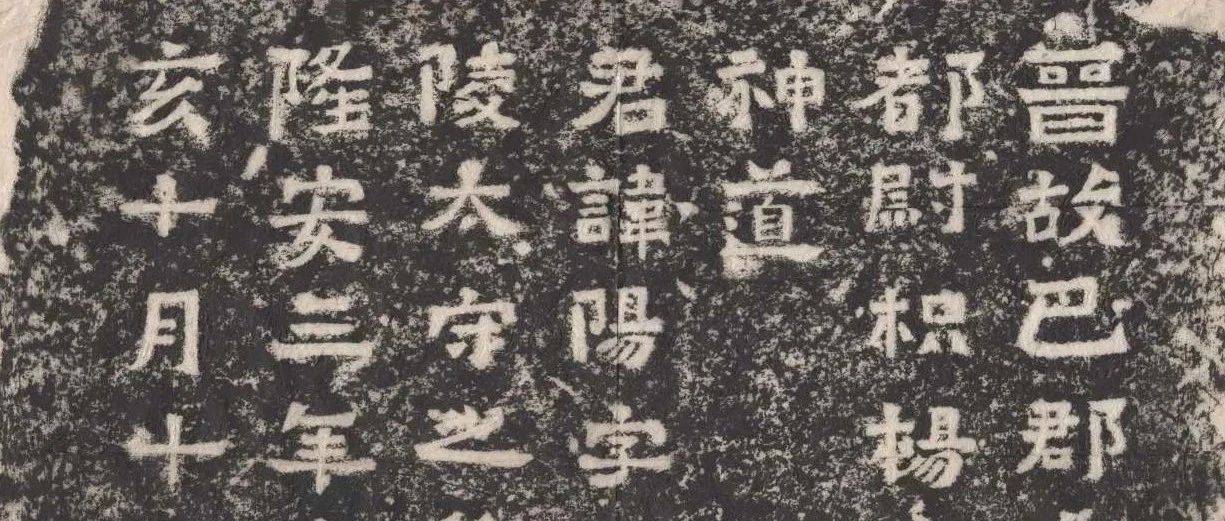 晉故巴郡
都尉枳楊
神道
君諱陽字
陵太守之
隆安三年
亥十月十